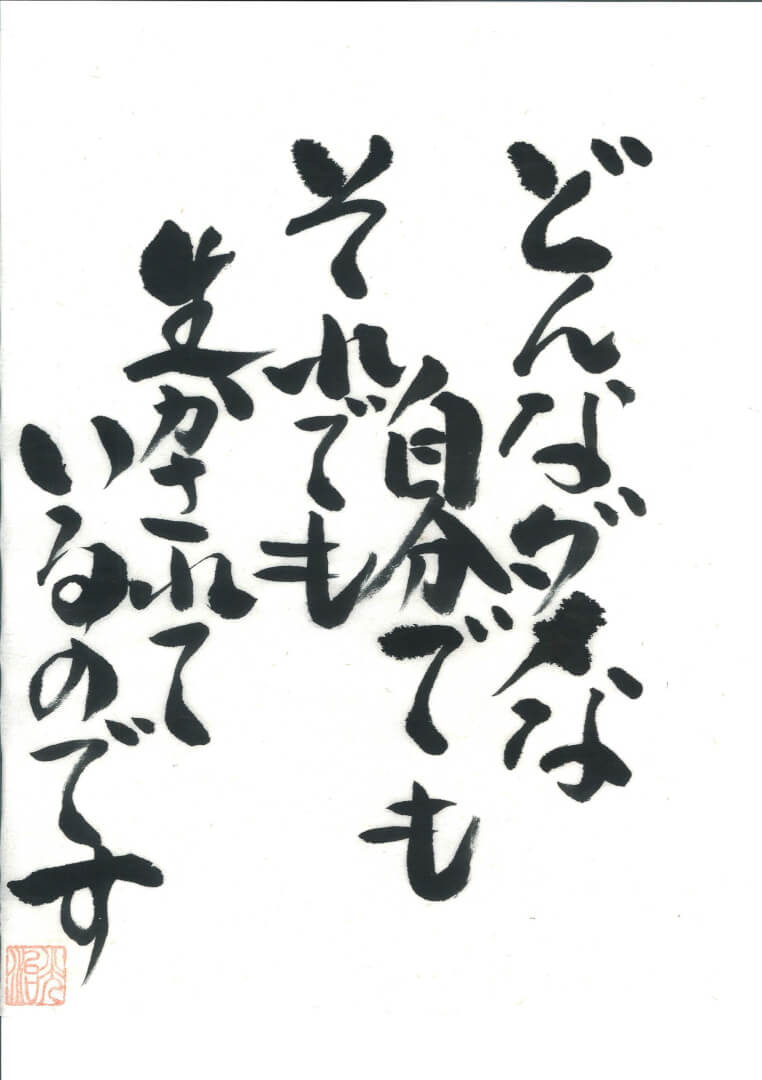 どんなダメな
自分でも
それでも
生かされて
いるのです